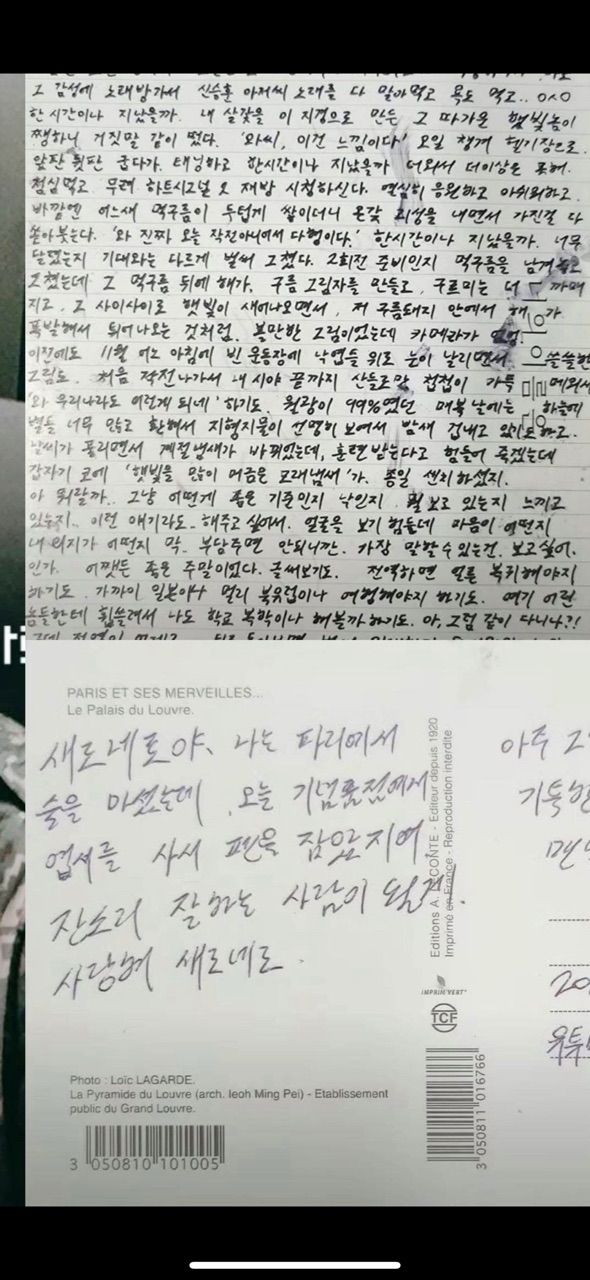 그 감성에 노래방가서 신승훈 아저씨 노래를 다 말아먹고 욕도 먹고.. 0^0
한시간이나 지났을까. 내 살갗을 이 지경으로 만든 그 따가운 햇빛놈이
쨍하니 거짓말 같이 떴다. '와씨, 이건 느낌이다' 오일 챙겨 헬기장으로.
앞판 뒷판 굽다가. 태닝하고 한시간이나 지났을까 더워서 더이상은 못해.
점심먹고 무려 하트시그널 2 재방 시청하신다. 열심히 응원하고 아쉬워하고.
바깥엔 어느새 먹구름이 두텁게 쌓이더니 온갖 괴성을 내면서 가진걸 다
쏟아붓는다. '와 진짜 오늘 작전아니어서 다행이다.' 한시간이나 지났을까. 너무
달렸는지 기대와는 다르게 벌써 그쳤다. 2회전 준비인지 먹구름을 남겨놓고
그쳤는데 그 먹구름 뒤에 해가. 구름 그림자를 만들고, 구르미는 더 까매
지고. 그 사이사이로 햇빛이 새어나오면서, 저 구름돼지 안에서 해가
폭발해서 튀어나오는 것처럼. 볼만한 그림이었는데 카메라가
이전에도 11월 어느 아침에 빈 운동장에 낙엽들 위로 눈이 날리면서 쓸쓸한
그림도. 처음 작전나가서 내 시야 끝까지 산들로만 첩첩이 가득 메워서
'와 우리나라도 이렇게 되네' 하기도. 월광이 99%였던 매복날에는 하늘에
별들 너무 많고 환해서 지형지물이 선명히 보여서 밤새 겁내고 있기도하고.
날씨가 풀리면서 계절냄새가 바뀌었는데, 훈련받는다고 힘들어 죽겠는데
갑자기 코에 '햇빛을 많이 머금은 모래냄새'가. 종일 센치하셨지.
아 뭐랄까.. 그냥 어떤게 좋은 기준인지 낙인지 뭘 보고 있는지 느끼고
있는지.. 이런 얘기라도.. 해주고 싶어서. 얼굴을 보기 힘든데 마음이 어떤지
내 의지가 어떤지 막.. 부담주면 안되니깐. 가장 말할 수 있는건. 보고싶어.
인가. 어쨌든 좋은 주말이었다. 글써보기도. 전역하면 얼른 복귀해야지
하기도. 가까이 일본이나 멀리 북유럽이나 여행해야지 하기도. 여기 어린
놈들한테 휩쓸려서 나도 학교 복학이나 해볼까하기도. 아, 그럼 같이 다니나?!
PARIS ET SES MERVEILLES...
Le Palais du Louvre.
새로네로야, 나는 파리에서
술을 마셨는데 오늘 기념품점에서
엽서를 사서 편을 잠으로지어
잔소리 잘하는 사람이 될게.
사랑해 새로네로.
Editions A. LECONTE - Editeur depuis 1920
Imprimé en France - Reproduction interdite
아주
기특한
IMPRIM'VERT
TCF
20
유튜
Photo : Loïc LAGARDE.
La Pyramide du Louvre (arch. Ieoh Ming Pei) - Etablissement
public du Grand Louvre.
3 050810 101005
3 050811 016766